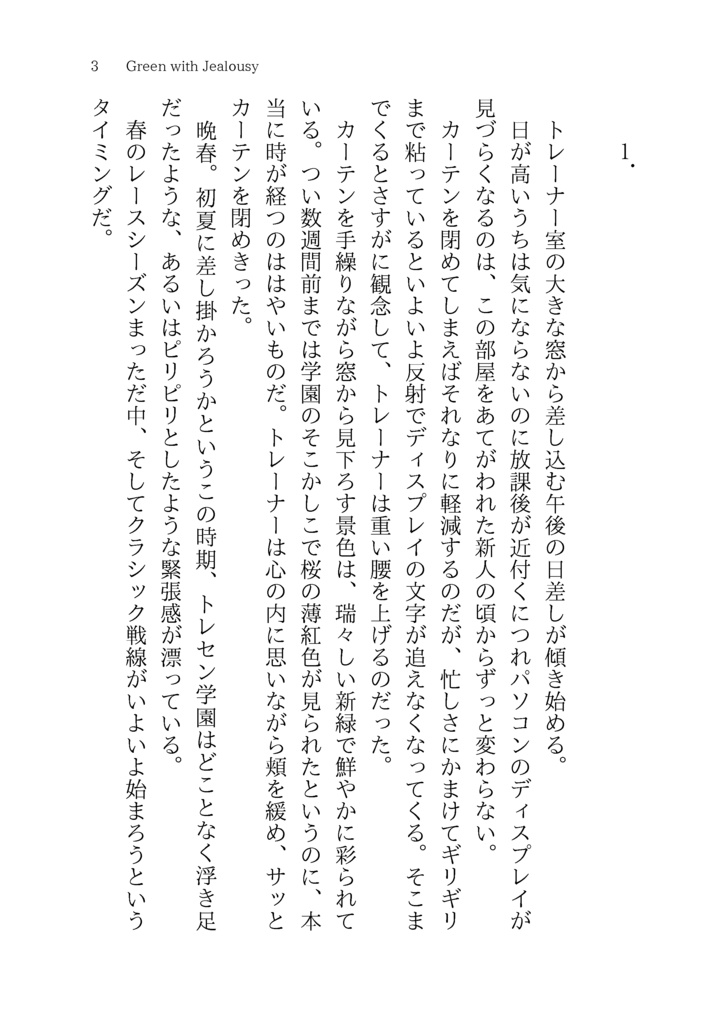 3 Green with Jealousy
1.
トレーナー室の大きな窓から差し込む午後の日差しが傾き始める。
日が高いうちは気にならないのに放課後が近付くにつれパソコンのディスプレイが
見づらくなるのは、この部屋をあてがわれた新人の頃からずっと変わらない。
カーテンを閉めてしまえばそれなりに軽減するのだが、忙しさにかまけてギリギリ
まで粘っているといよいよ反射でディスプレイの文字が追えなくなってくる。そこま
でくるとさすがに観念して、トレーナーは重い腰を上げるのだった。
カーテンを手繰りながら窓から見下ろす景色は、瑞々しい新緑で鮮やかに彩られて
いる。つい数週間前までは学園のそこかしこで桜の薄紅色が見られたというのに、本
当に時が経つのははやいものだ。トレーナーは心の内に思いながら頬を緩め、サッと
カーテンを閉めきった。
晩春。初夏に差し掛かろうかというこの時期、トレセン学園はどことなく浮き足
だったような、あるいはピリピリとしたような緊張感が漂っている。
春のレースシーズンまっただ中、そしてクラシック戦線がいよいよ始まろうという
タイミングだ。